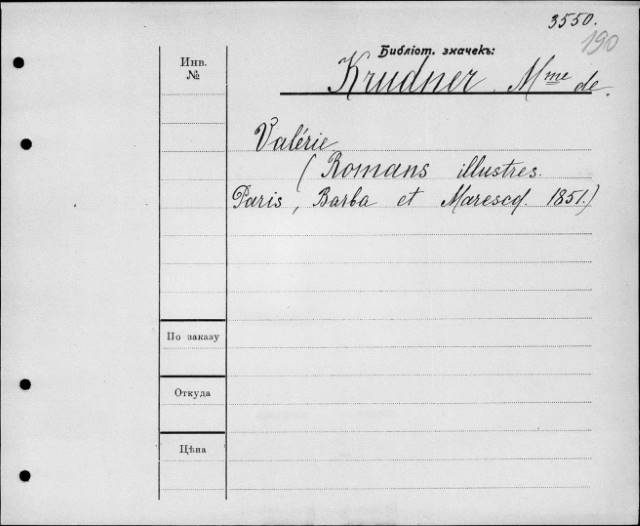 3550.
190
Библіот. значекъ:
Инв.
№
Krudner M^me de.
Valérie
(Romans illustres.
Paris, Barba et Marescq. 1851.)
По заказу
Откуда
Цѣна